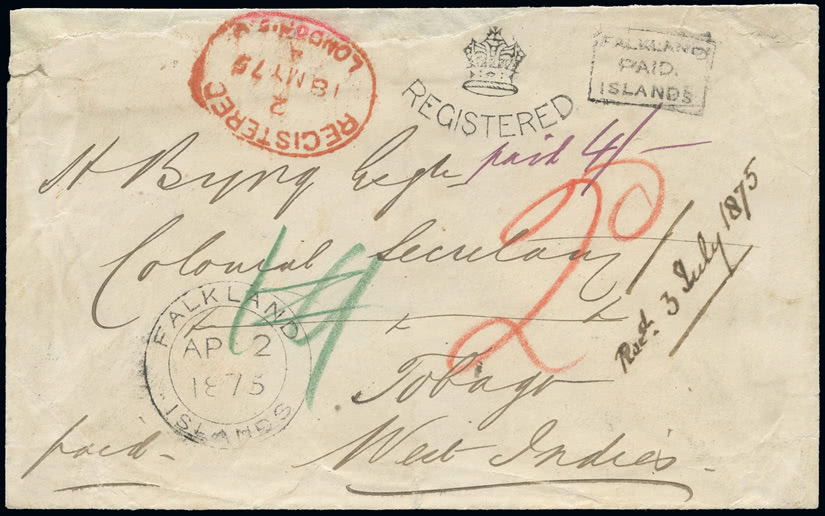 REGISTERED
LONDON
18 MY 75
2
REGISTERED
FALKLAND
PAID.
ISLANDS
H Byng Esqre
paid 4/-
Colonial Secretary
Tobago
West Indies.
paid
FALKLAND
AP 2
1875
ISLANDS
2D
Recd. 3 July 1875